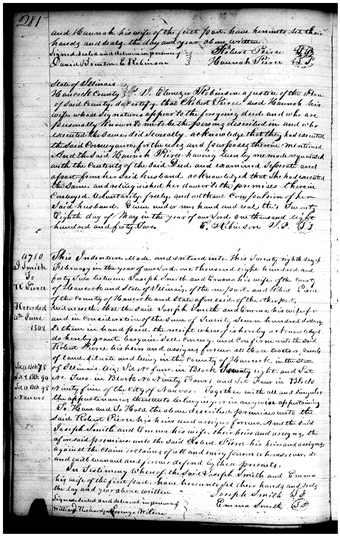 281
and Hannah his wife of the first part, have hereunto set their
hands and seals the day and year above written
Signed sealed and delivered in presence of } Robert Peirce
David E. Robinson } Hannah Peirce
State of Illinois }
Hancock County } I. Ebenezer Robinson a Justice of the Peace
of said County, do certify, that Robert Peirce and Hannah his
wife whose signatures appear to the foregoing deed and who are
personally known to me to be the persons described in and who
executed the same did severally acknowledge that they had executed
the said Conveyance, for the uses and purposes therein mentioned
And the said Hannah Peirce having been by me made acquainted
with the Contents of the said Deed and examined separate and
apart from her said husband, acknowledged that she had executed
the same and relinquished her dower to the premises therein
Conveyed Voluntarily freely, and without Compulsion of her
said husband. Given under my hand and seal this twenty
Eighth day of in the year of our Lord one thousand eight
hundred and forty two. E. Robinson J. P.
4760
J Smith
To
R Peirce
Recorded
June
1842
This Indenture Made and entered into this twenty eighth day of
February in the year of our Lord one thousand eight hundred and
forty two between Joseph Smith and Emma his wife of the County
of Hancock and State of Illinois, of the one part, and Robert Peirce
of the County of Hancock and State aforesaid of the other part,
Witnesseth that the said Joseph Smith and Emma his wife for
and in Consideration of the sum of hundred dollars
to them in hand paid the receipt whereof is hereby acknowledged
do hereby grant bargain Sell Convey and Confirm unto the said
Robert Peirce his heirs and assigns forever all those tracts or parcels
of Land situate and being in the County of Hancock in the State
of Illinois Viz Lot four in Block Seventy eight and Lot
Four in Block and Lot Four in Block
Ninety in the City of Nauvoo Together with all and Singular
the appurtenances thereunto belonging or in any wise appertaining
To Have and To Hold the above described premises unto the
said Robert Peirce his heirs and assigns forever. And the said
Joseph Smith and Emma his wife, their heirs and assigns, the
aforesaid premises unto the said Robert Peirce his heirs and assigns
against the claim or claims of all and every person whomsoever, do
and will warrant and forever defend by these presents.
In Testimony Whereof the said Joseph Smith and Emma
his wife of the first part, have hereunto set their hands and seals
the day and year above written Joseph Smith
Signed sealed and delivered in presence of } Emma Smith